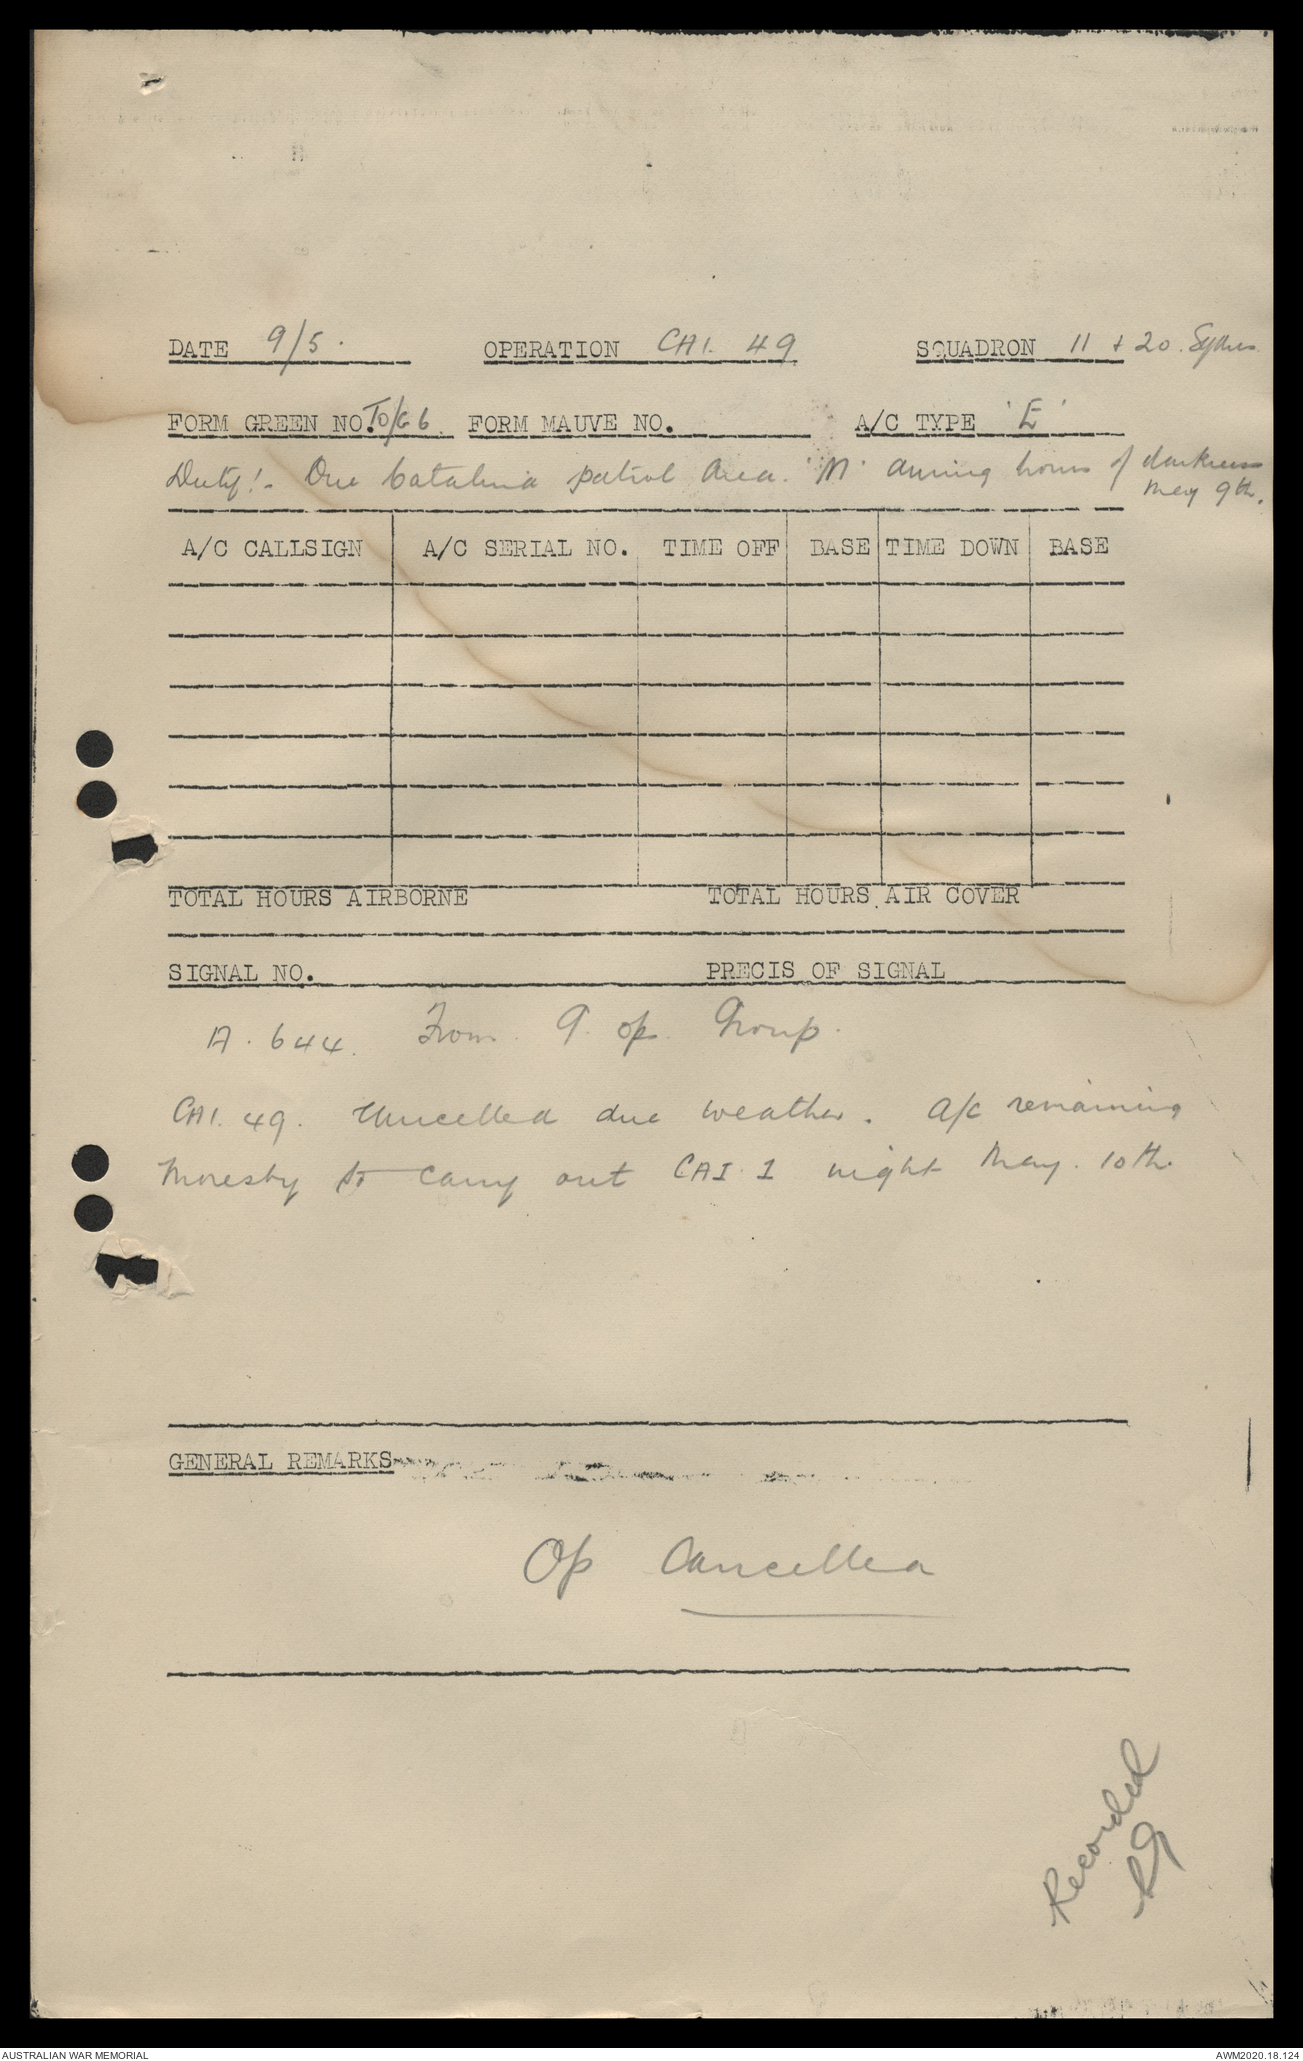 DATE 9/5. OPERATION CAI. 49 SQUADRON 11 + 20. Sqdns
FORM GREEN NO. TO/G6. FORM MAUVE NO. A/C TYPE 'E'
Duty:- One Catalina patrol Area 'M' during hours of darkness
May 9th.
A/C CALLSIGN A/C SERIAL NO. TIME OFF BASE TIME DOWN BASE
TOTAL HOURS AIRBORNE TOTAL HOURS AIR COVER
SIGNAL NO. PRECIS OF SIGNAL
A. 644. From 9. op. Group.
CAI. 49. Cancelled due weather. A/c remaining
Moresby to carry out CAI 1 night May. 10th.
GENERAL REMARKS
Op Cancelled
Recorded
AUSTRALIAN WAR MEMORIAL AWM2020.18.124